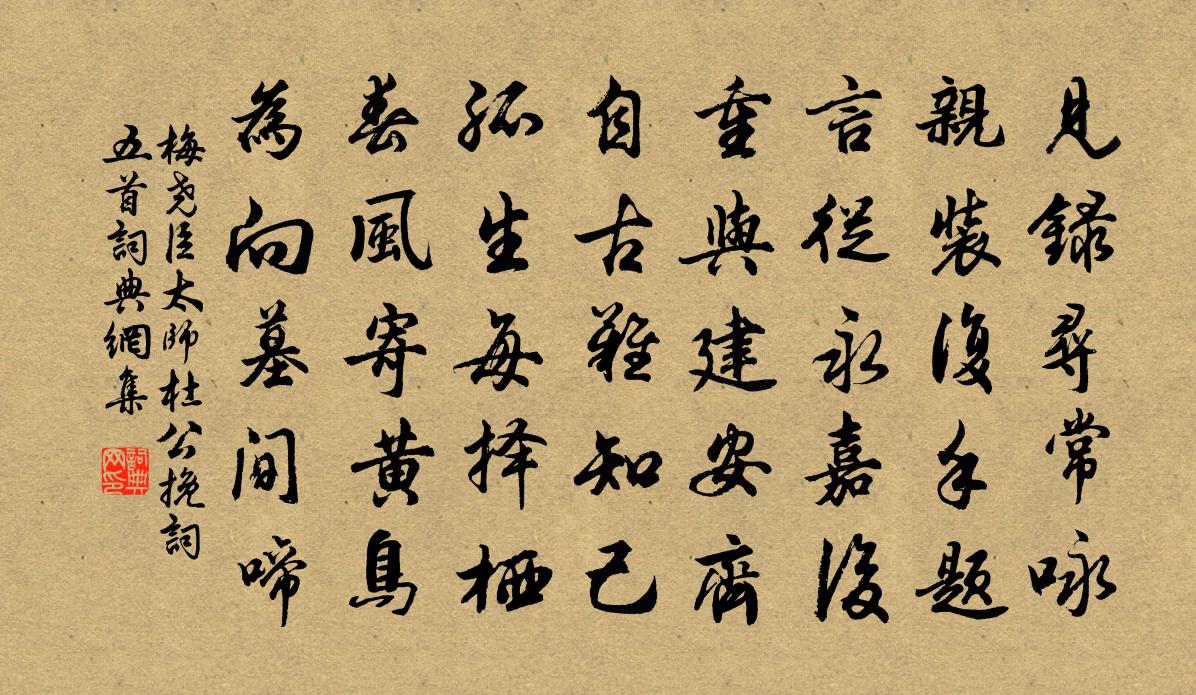 見錄尋常咏
親裝復手題
言從永嘉後
重與建安齊
自古難知己
孤生每擇栖
春風寄黃鳥
為向墓間啼
梅堯臣太師杜公挽詞
五首詞典網集
詞典
网印